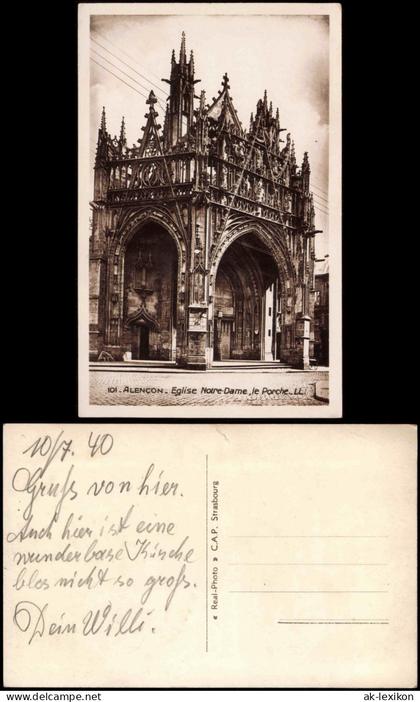 101 - ALENÇON - Eglise Notre-Dame, le Porche - LL
10/7. 40
Gruß von hier.
Auch hier ist eine
wunderbare Kirche
blos nicht so groß.
Dein Willi.
« Real-Photo » C.A.P. Strasbourg
www.ak-ansichtskarten.de
ak-lexikon